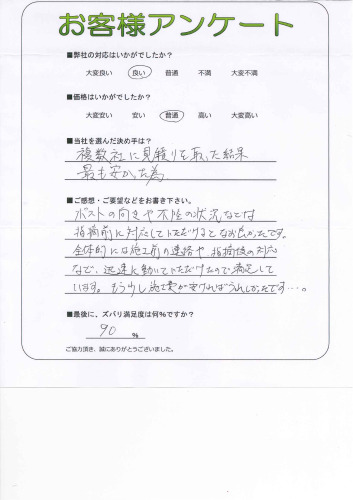 お客様アンケート
■弊社の対応はいかがでしたか？
大変良い 良い 普通 不満 大変不満
■価格はいかがでしたか？
大変安い 安い 普通 高い 大変高い
■当社を選んだ決め手は？
複数社に見積りを取った結果
最も安かった為
■ご感想・ご要望などをお書き下さい。
ポストの向きや不陸の状況などは
指摘前に対応していただけるとなお良かったです。
全体的には施工前の連絡や、指摘後の対応
など、迅速に動いていただけたので満足して
います。もう少し施工費が安ければうれしかったです…。
■最後に、ズバリ満足度は何%ですか？
90 %
ご協力頂き、誠にありがとうございました。